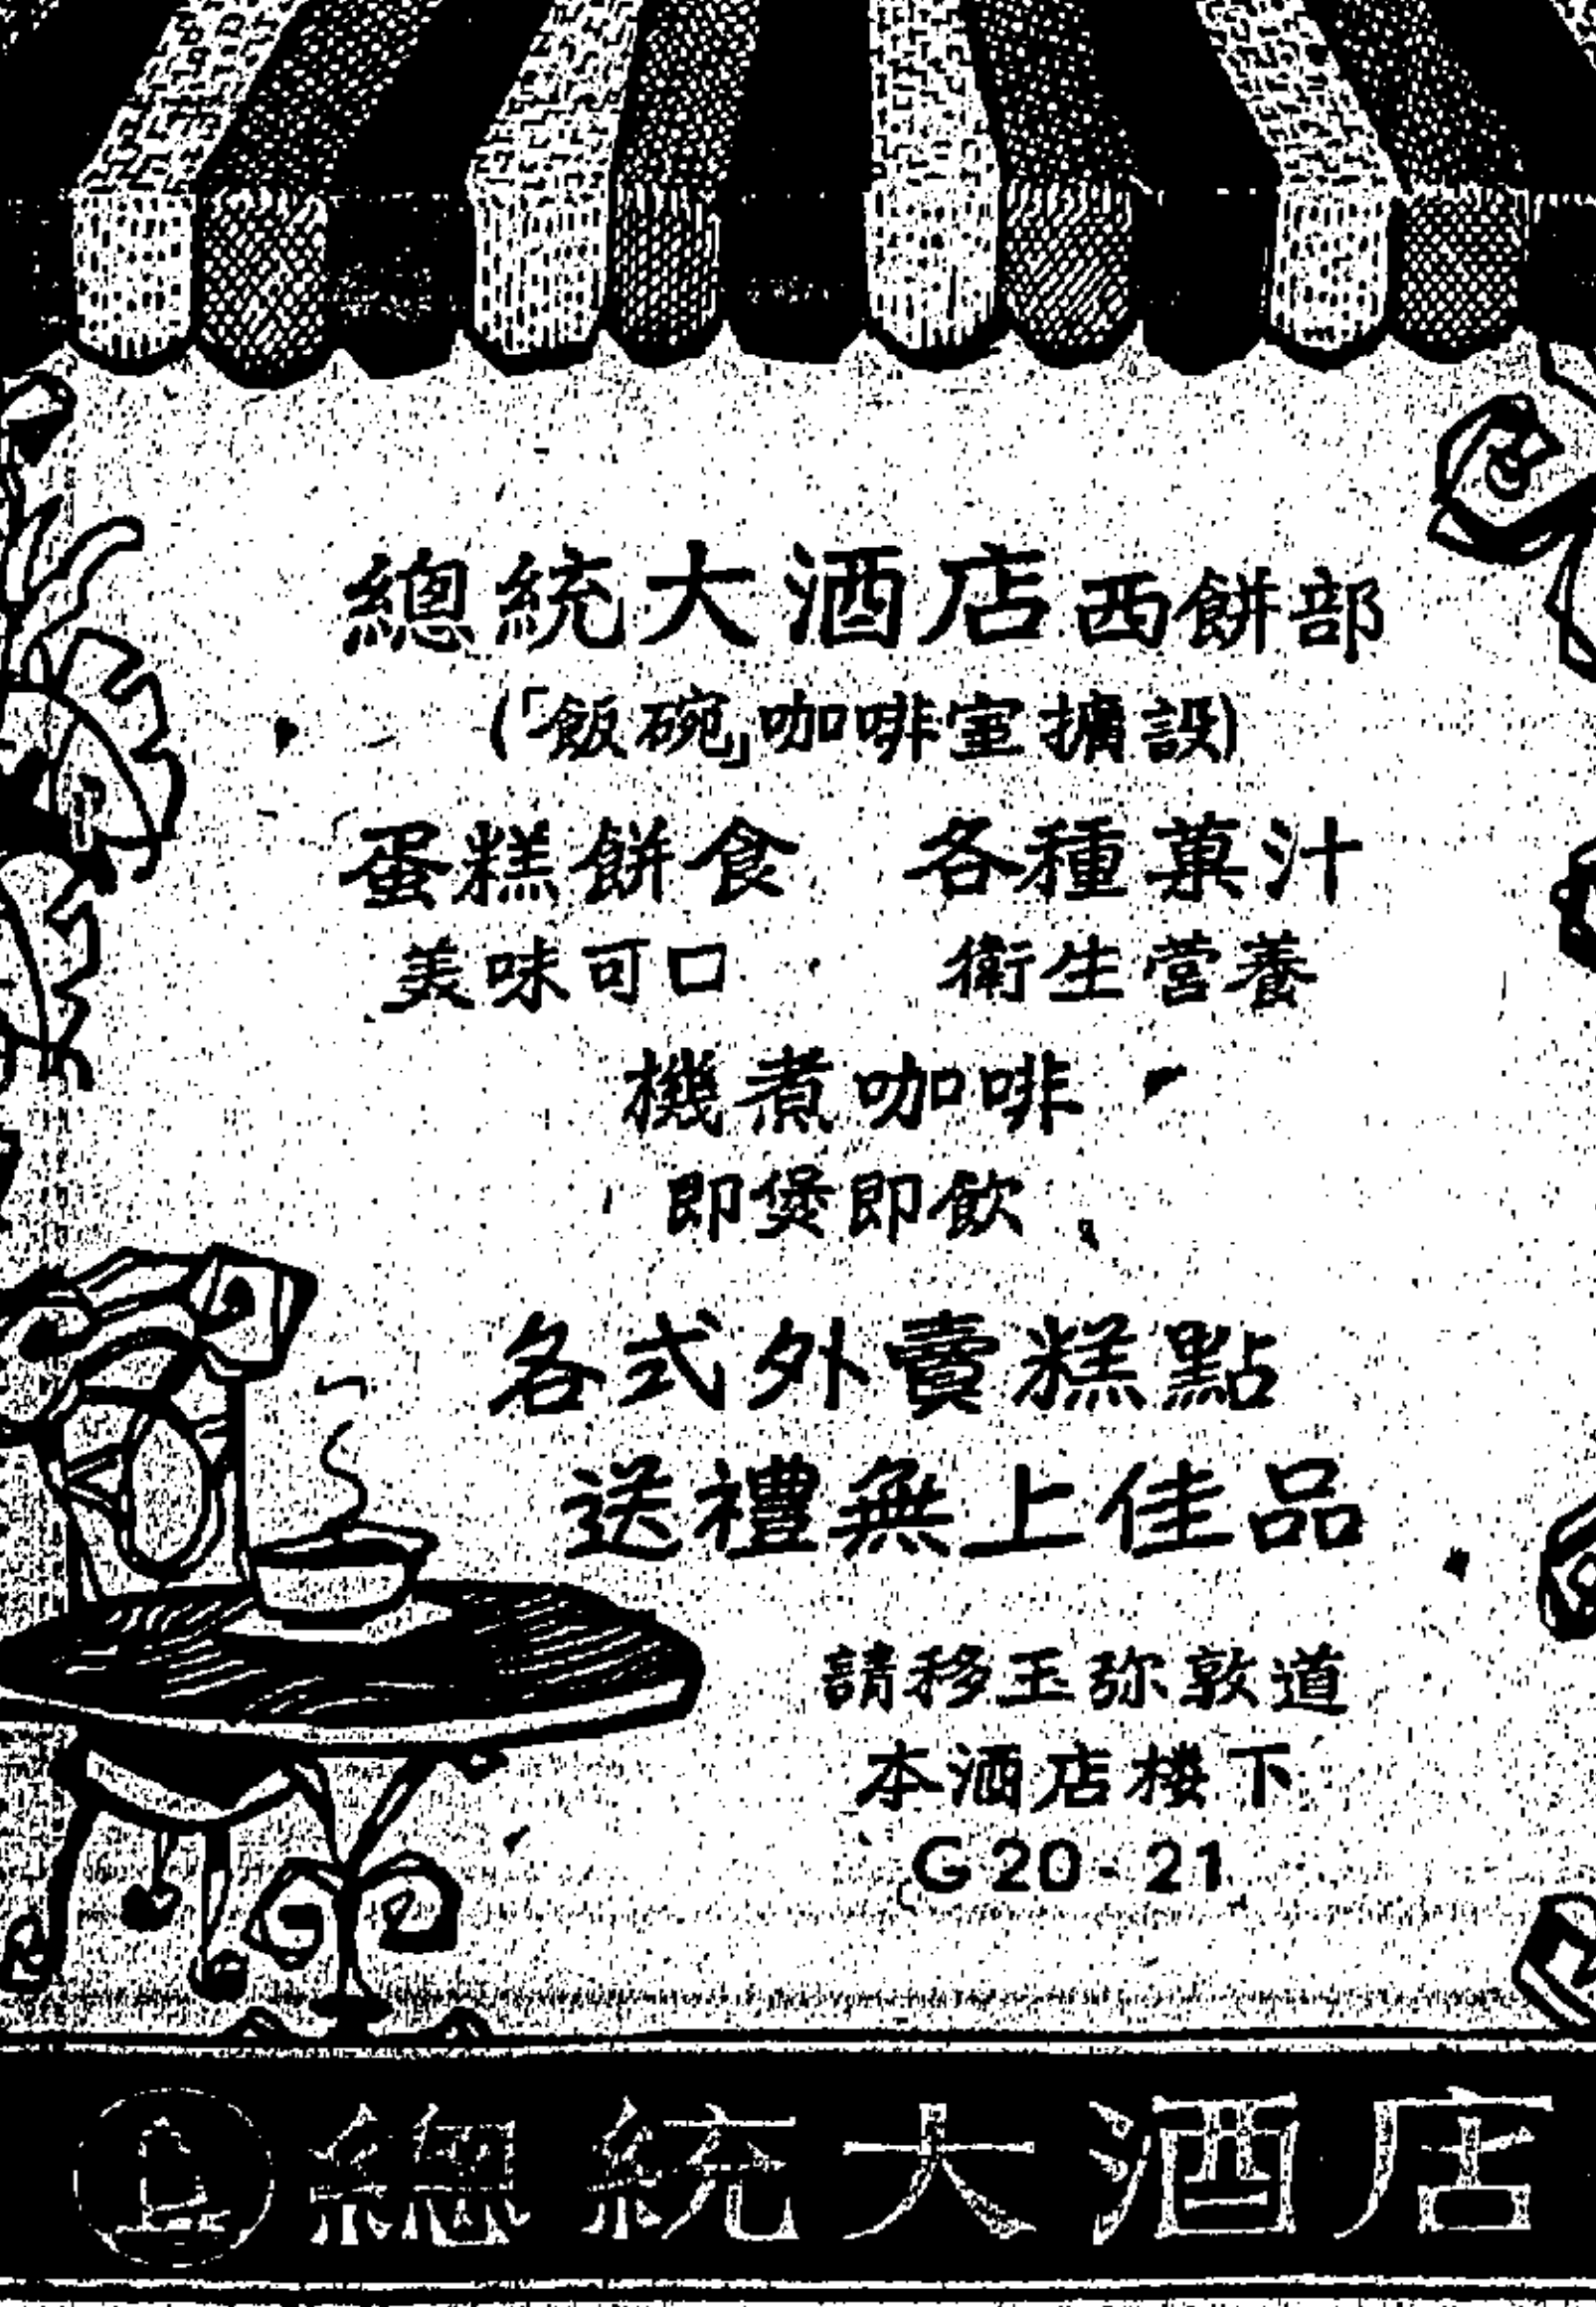 總統大酒店西餅部
(「飯碗」咖啡室擴設)
蛋糕餅食　各種菓汁
美味可口　衛生營養
機煮咖啡
即煲即飲
各式外賣糕點
送禮無上佳品
請移玉弥敦道
本酒店樓下
G20-21
總統大酒店